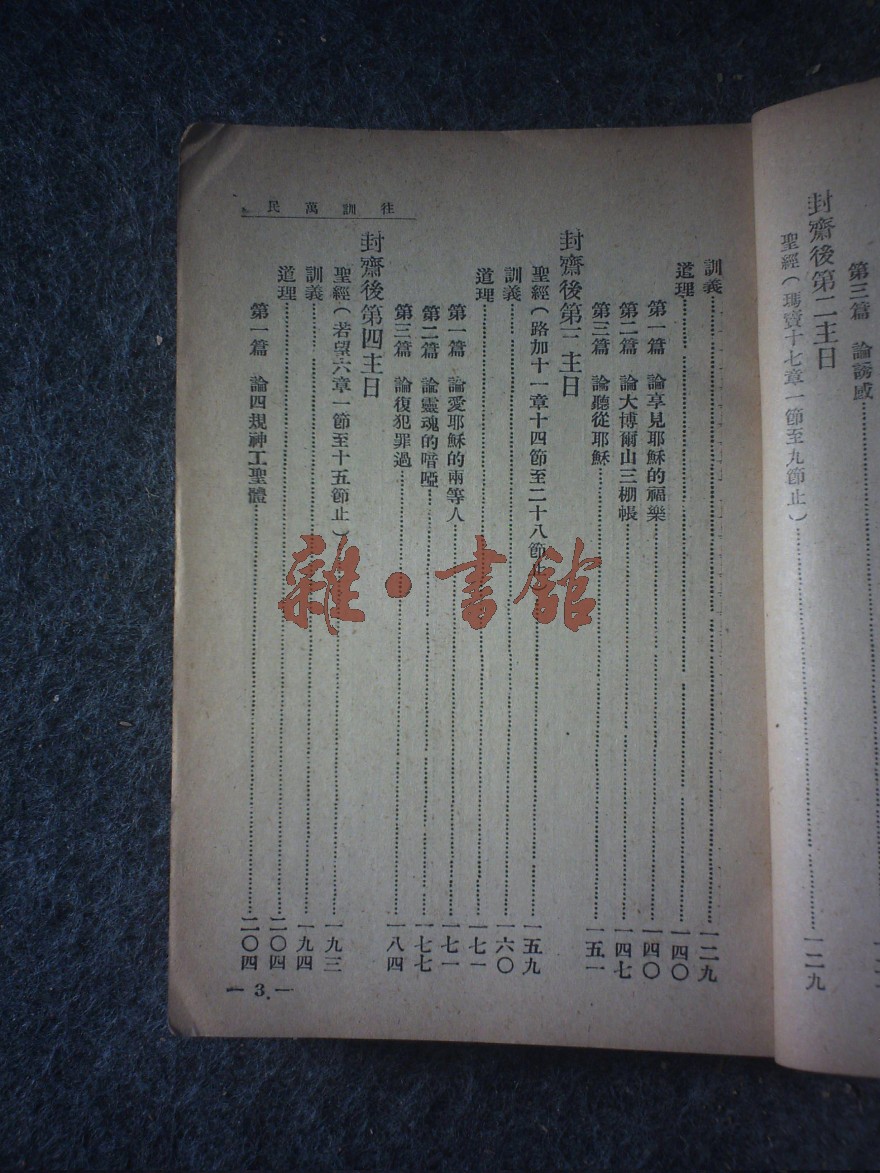 第三篇　論誘惑
封齋後第二主日
聖經（瑪竇十七章一節至九節止）一二九
往訓萬民
訓義一二九
道理一四〇
第一篇　論享見耶穌的福樂一四〇
第二篇　論大博爾山三棚帳一四七
第三篇　論聽從耶穌一五一
封齋後第三主日
聖經（路加十一章十四節至二十八節止）一五九
訓義一六〇
道理一七一
第一篇　論愛耶穌的兩等人一七一
第二篇　論靈魂的喑啞一七七
第三篇　論復犯罪過一八四
封齋後第四主日
聖經（若望六章一節至十五節止）一九三
訓義一九四
道理二〇四
第一篇　論四規神工聖體二〇四
— 3 —
雜·書館